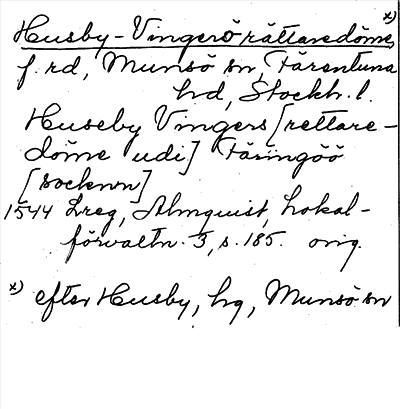 x)
Husby-Vingerö rättaredöme,
f. rd, Munsö sn, Färentuna
hd, Stockh. l.
Huseby Vingers [rettare-
döme udi] Färingöö
[socknn]
1544 Lreg, Almquist, Lokal-
förvaltn. 3, s. 185. orig.
x) efter Husby, hg, Munsö sn